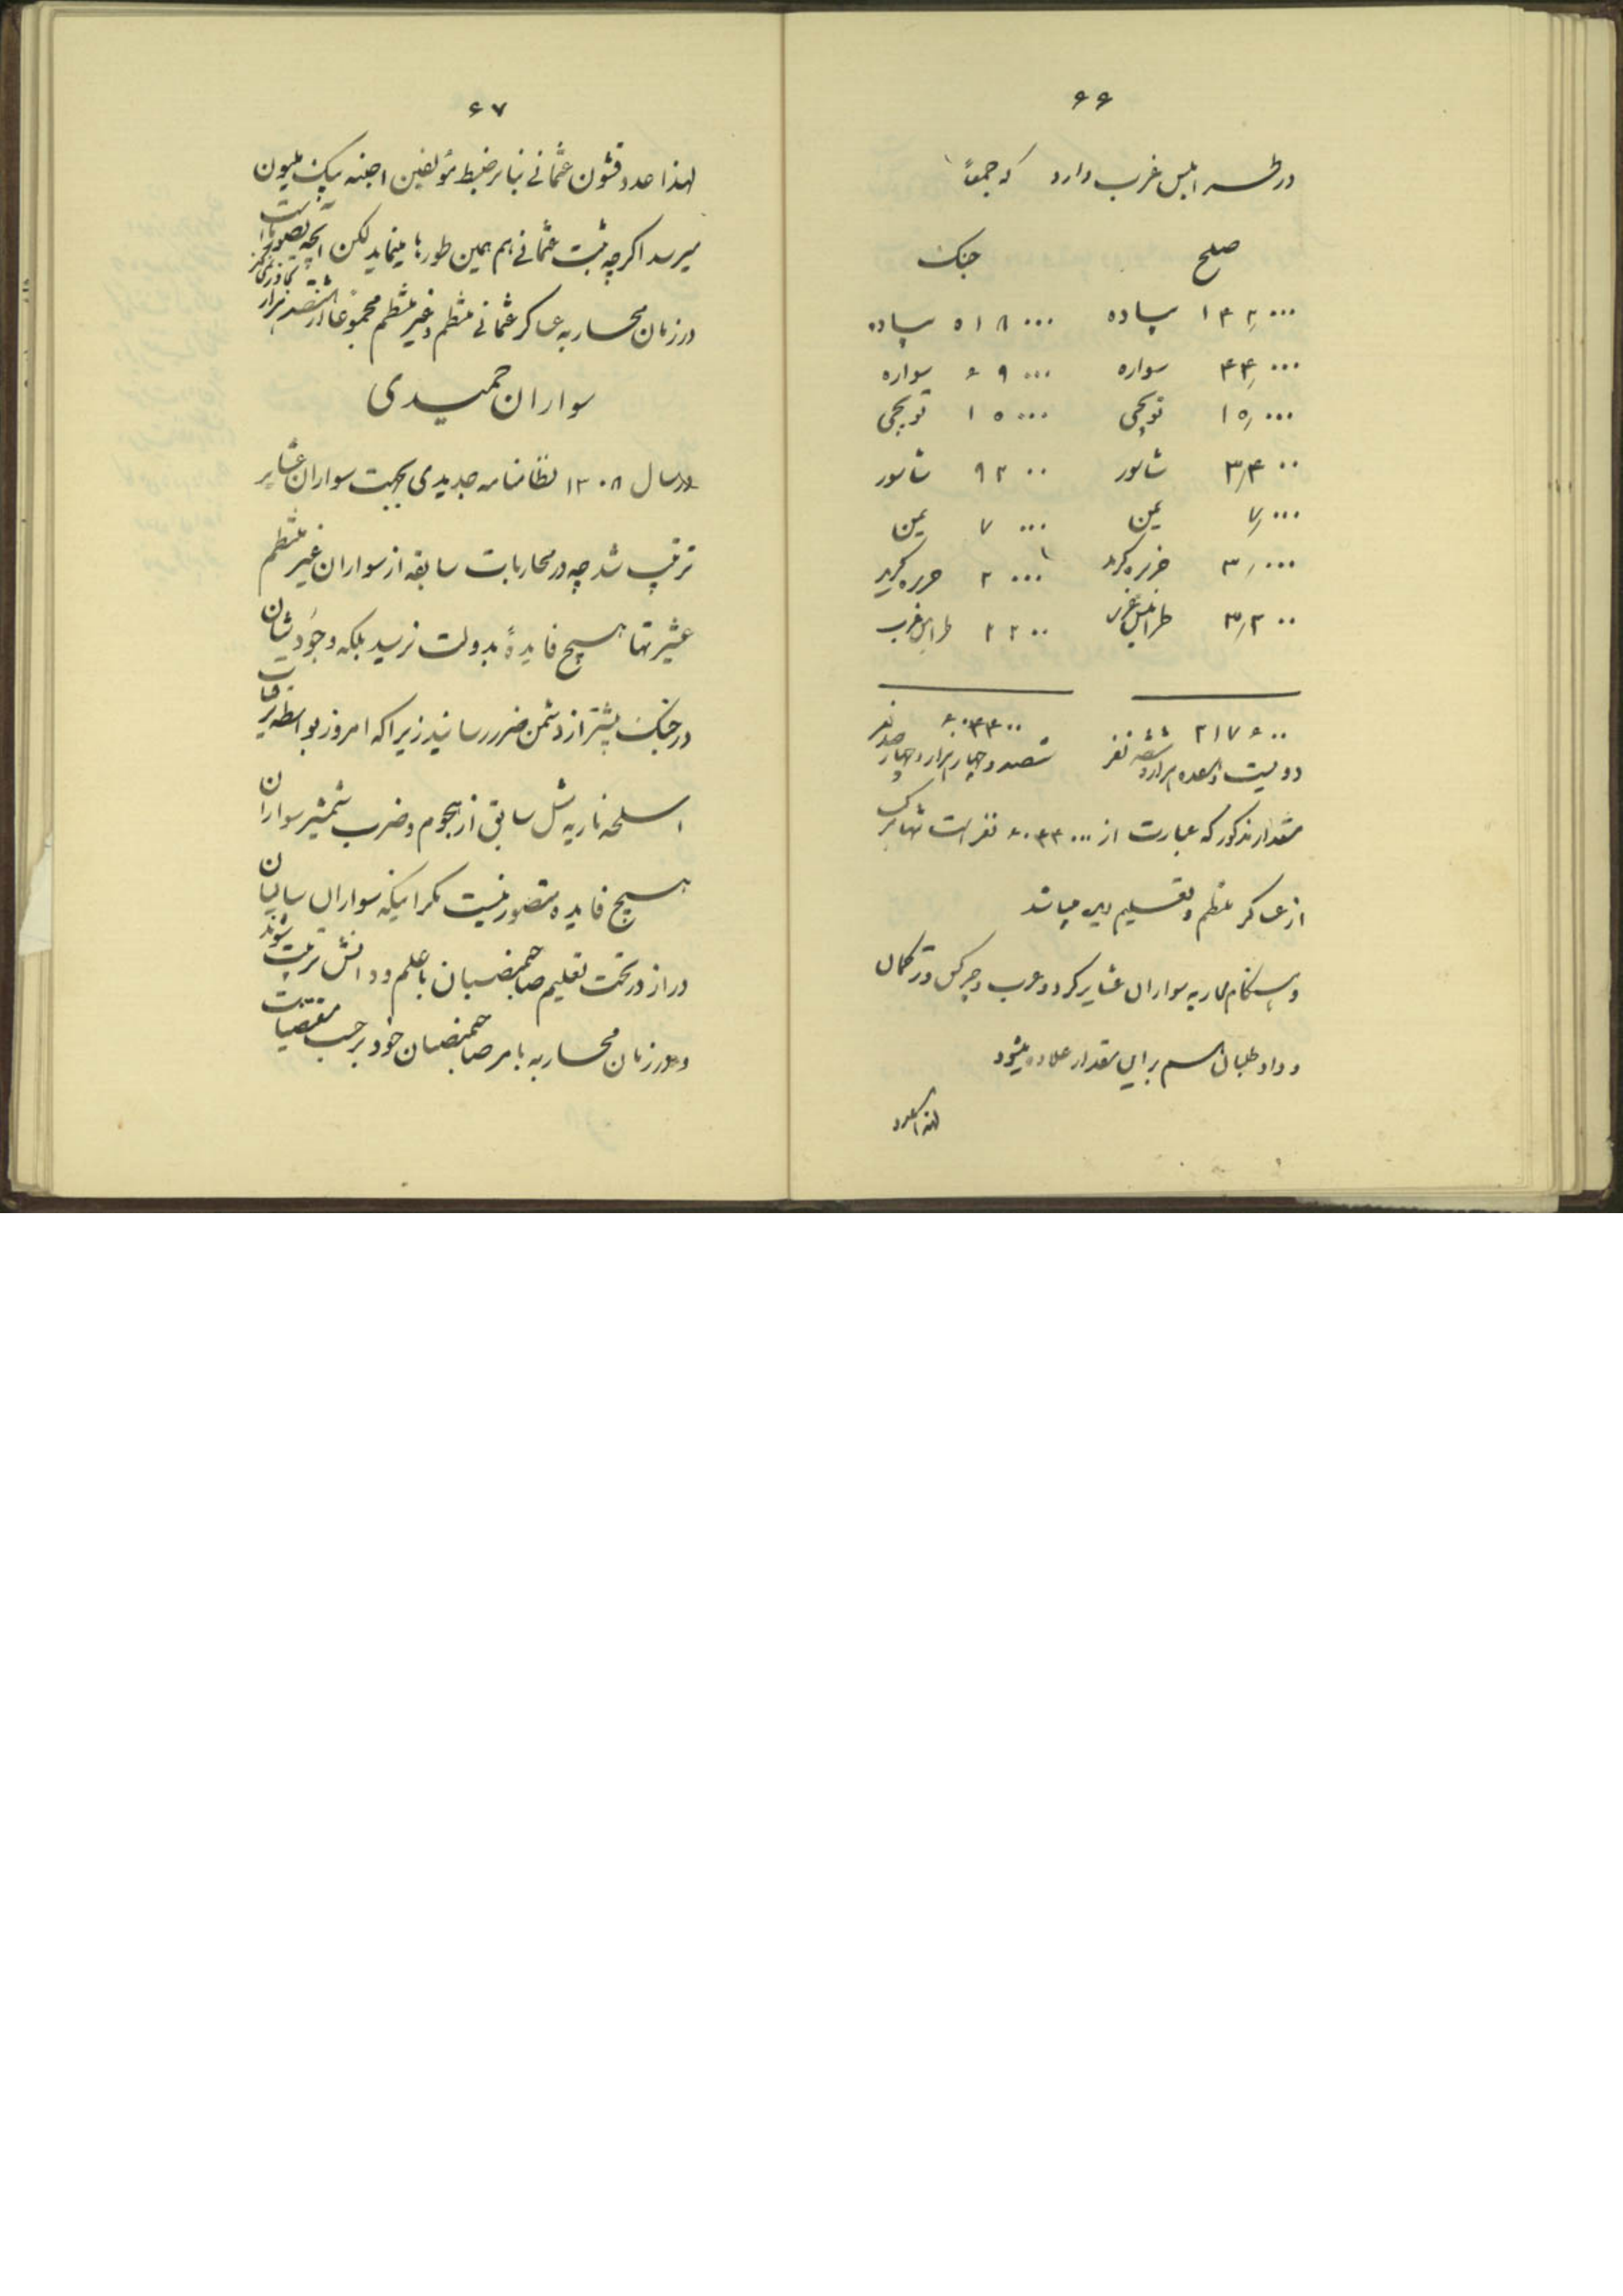 ۶۶
در طرابلس غرب دارد که جمعاً
صلح جنک
۱۴۲٫۰۰۰ پیاده ۵۱۸۰۰۰ پیاده
۴۴٫۰۰۰ سواره ۶۹۰۰۰ سواره
۱۵٫۰۰۰ توپچی ۱۵۰۰۰ توپچی
۳٫۴۰۰ ۹۲۰۰
۷٫۰۰۰ یمن ۷۰۰۰ یمن
۳٫۰۰۰ جزیره کرید ۲۰۰۰ جزیره کرید
۳٫۲۰۰ طرابلس غرب ۲۲۰۰ طرابلس غرب
۲۱۷۶۰۰ ۶۰۴۴۰۰
دویست و هفده هزار و ششصد نفر ششصد و چهار هزار و چهار صد نفر
مقدار مذکور که عبارت از ۶۰۴۴۰۰۰ نفر است تنها ترک
از عساکر منظم و تعلیم دیده میباشد
و هنکام محاربه سواران عشایر کرد و عرب و چرکس و ترکمان
و داوطلبان هم بر این مقدار علاوه میشود
لهذا عدد
۶۷
لهذا عدد قشون عثمانی بنا بر ضبط مؤلفین اجنبه بیک ملیون
میرسد اکرچه ثبت عثمانی هم همین طورها مینماید لکن آنچه بصورت
در زمان محاربه عساکر عثمانی منظم و غیر منظم مجموعاً از هشتصد هزار تجاوز نمیکند
سواران حمیدی
در سال ۱۳۰۸ نظامنامه جدیدی بجهت سواران عشایر
ترتیب شد چه در محاربات سابقه از سواران غیر منظم
عشیرتها هیچ فایدهٔ بدولت نرسید بلکه وجودشان
در جنک بیشتر از دشمن ضرر رسانید زیرا که امروز بواسطه ترقیات
اسلحه ناریه مثل سابق از هجوم و ضرب شمشیر سواران
هیچ فایده متصور نیست مکر اینکه سواران سالیان
دراز در تحت تعلیم صاحبمنصبان با علم و دانش تربیت شوند
و در زمان محاربه بامر صاحبمنصبان خود بر حسب مقتضیات